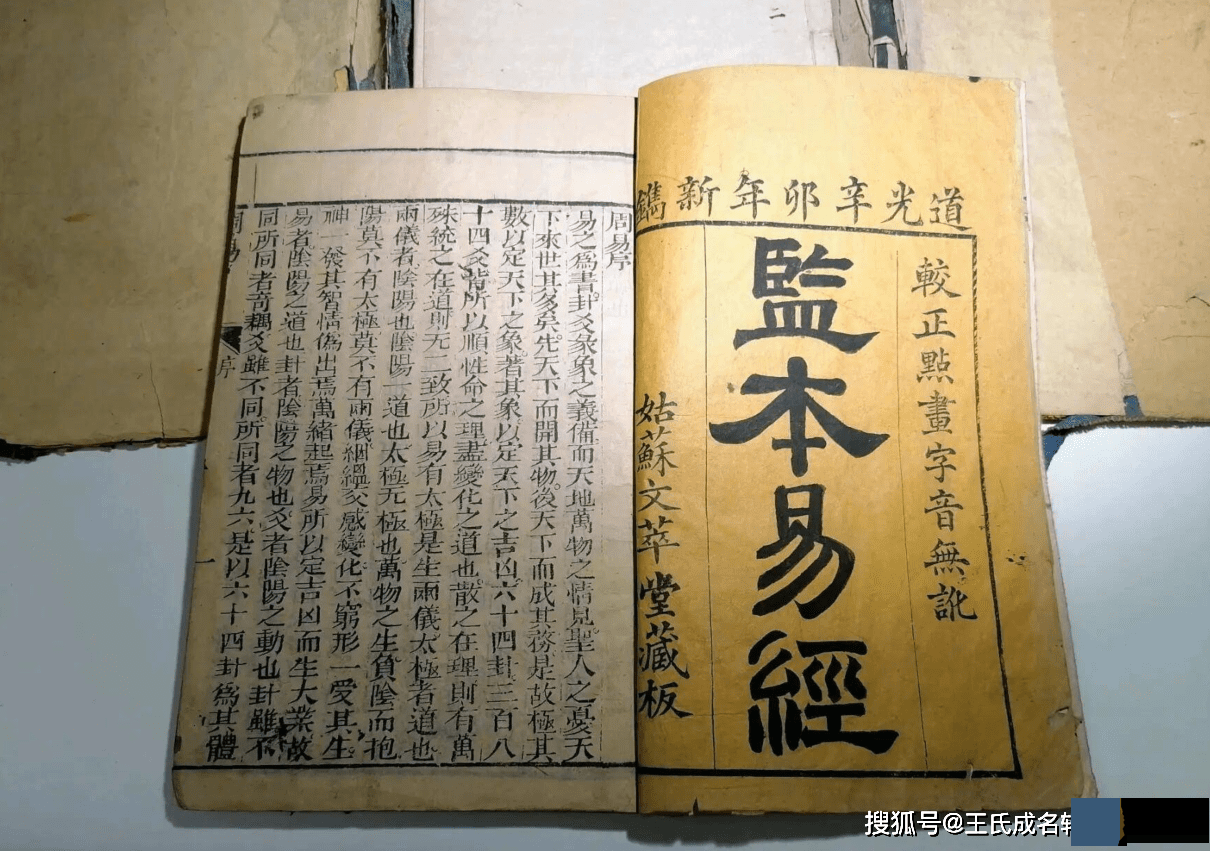 道光辛卯年新鐫
較正點畫字音無訛
監本易經
姑蘇文萃堂藏板
周易序
易之為書卦爻彖象之義備而天地萬物之情見聖人之憂天
下來世其多矣先天下而開其物後天下而成其務是故極其
數以定天下之象著其象以定天下之吉凶六十四卦三百八
十四爻皆所以順性命之理盡變化之道也散之在理則有萬
殊統之在道則无二致所以易有太極是生兩儀太極者道也
兩儀者陰陽也陰陽一道也太極无極也萬物之生負陰而抱
陽莫不有太極莫不有兩儀絪縕交感變化不窮形一受其生
神一發其智情偽出焉萬緒起焉易所以定吉凶而生大業故
易者陰陽之道也卦者陰陽之物也爻者陰陽之動也卦雖不
同所同者奇耦爻雖不同所同者九六是以六十四卦為其體
周易 序 一
搜狐号@王氏成名